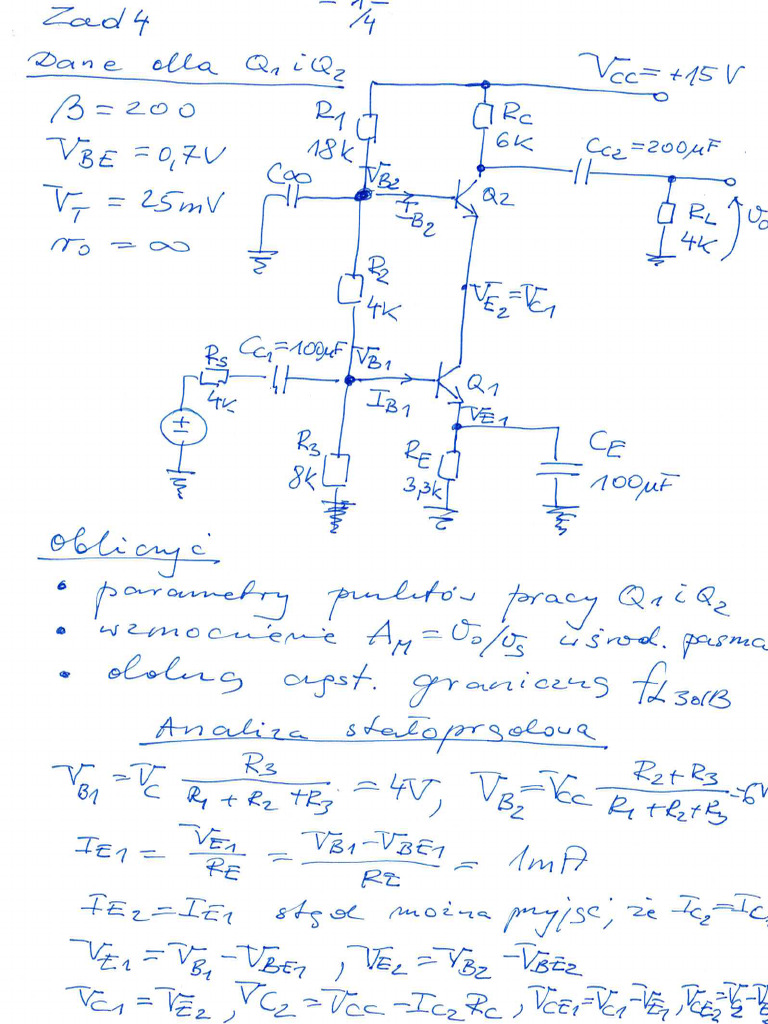 = 1/4
Zad 4
Dane dla Q1 i Q2
VCC = +15 V
β = 200
R1
18K
RC
6K
VBE = 0,7V
CC2 = 200μF
C∞
VB2
IB2
Q2
VT = 25mV
RL
4K
r0 = ∞
R2
4K
VE2 = VC1
CC1 = 100μF
VB1
RS
4K
IB1
Q1
VE1
±
R3
8K
RE
3,3K
CE
100μF
Obliczyć
• parametry punktów pracy Q1 i Q2
• wzmocnienie AM = υo/υs w środ. pasma
• dolną częst. graniczną fL3dB
Analiza stałoprądowa
VB1 = VC R3/(R1 + R2 + R3) = 4V, VB2 = VCC (R2 + R3)/(R1 + R2 + R3) = 6V
IE1 = VE1/RE = (VB1 - VBE1)/RE = 1mA
IE2 = IE1 stąd można przyjąć, że IC2 = IC
VE1 = VB1 - VBE1, VE2 = VB2 - VBE2
VC1 = VE2, VC2 = VCC - IC2 RC, VCE1 = VC1 - VE1, VCE2 =